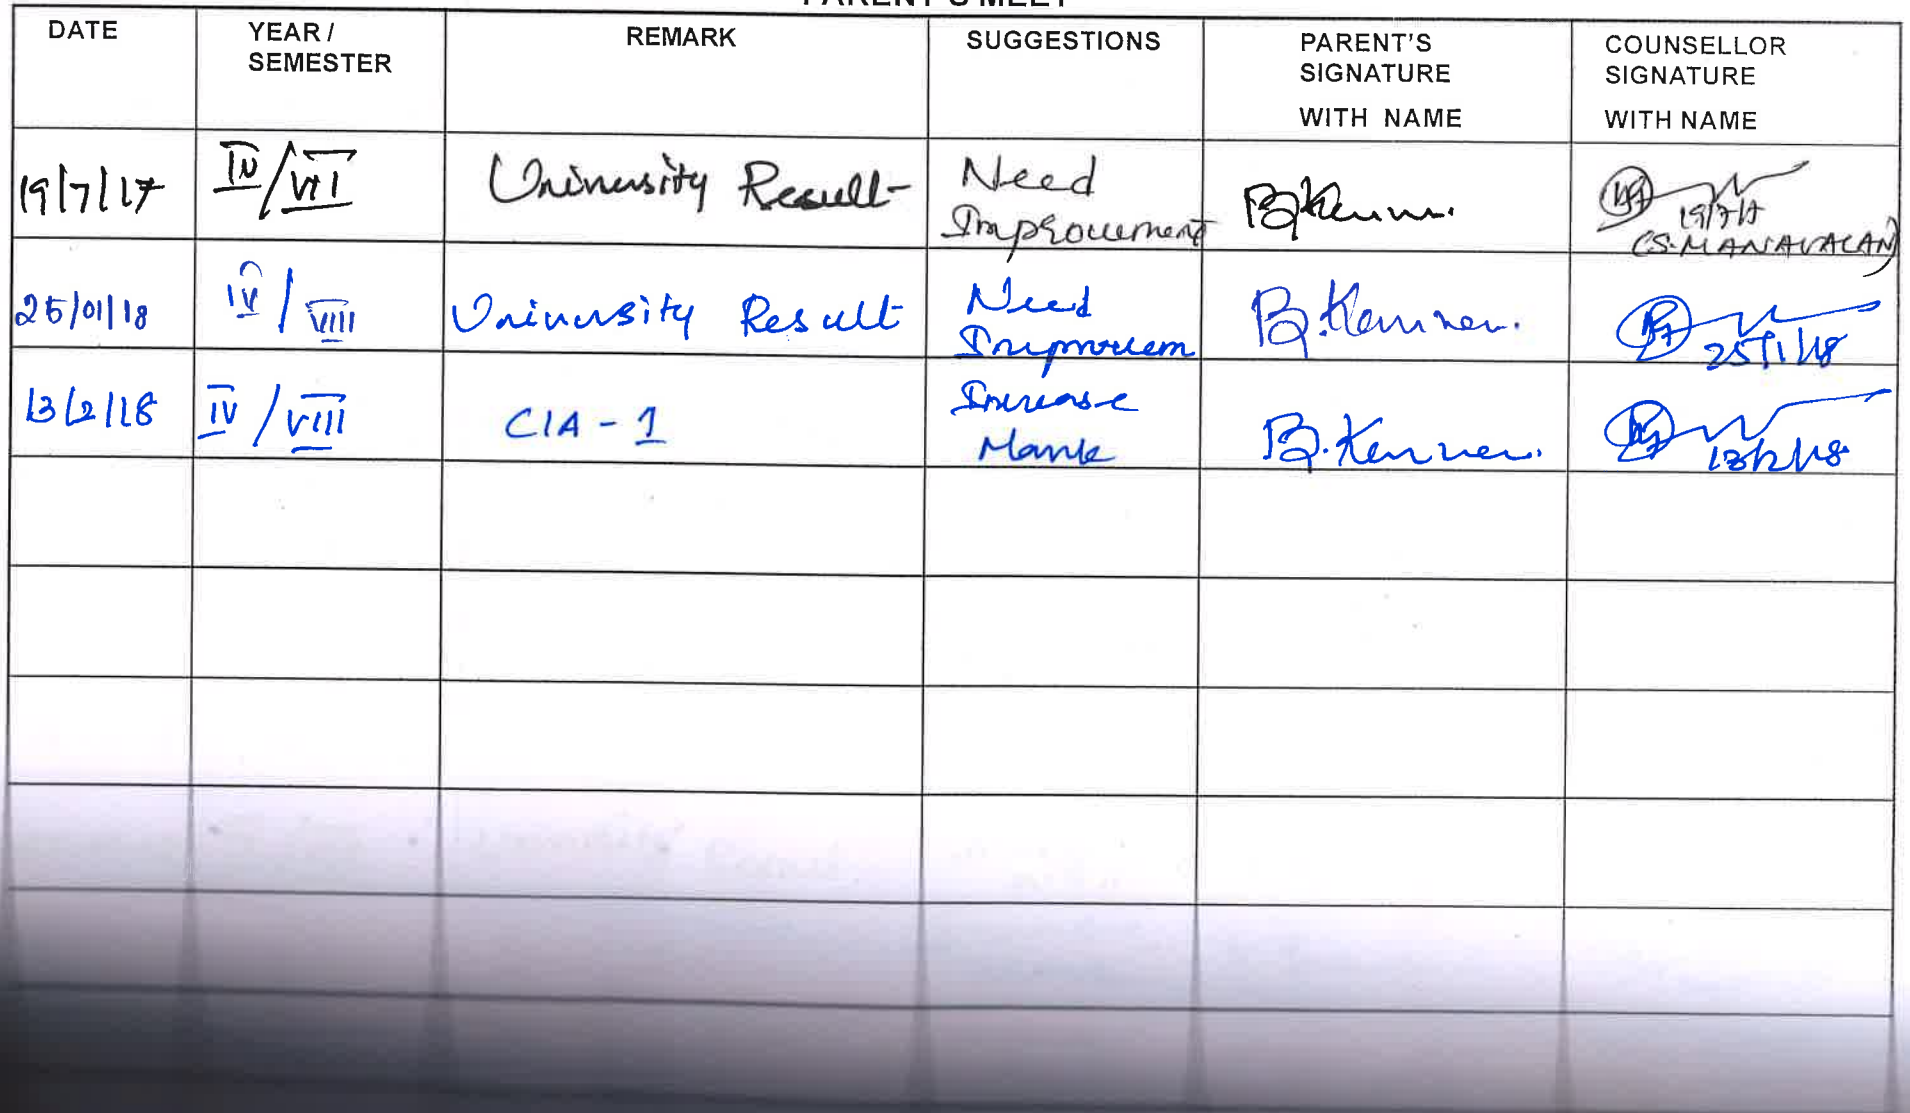 PARENT'S MEET
DATE YEAR / SEMESTER REMARK SUGGESTIONS PARENT'S SIGNATURE WITH NAME COUNSELLOR SIGNATURE WITH NAME
19/7/17 IV/VII University Result Need Improvement 19/7/17 (S. MANAVALAN)
25/01/18 IV/VIII University Result Need Improvem 25/1/18
13/2/18 IV/VIII CIA - 1 Increase Mark 13/2/18